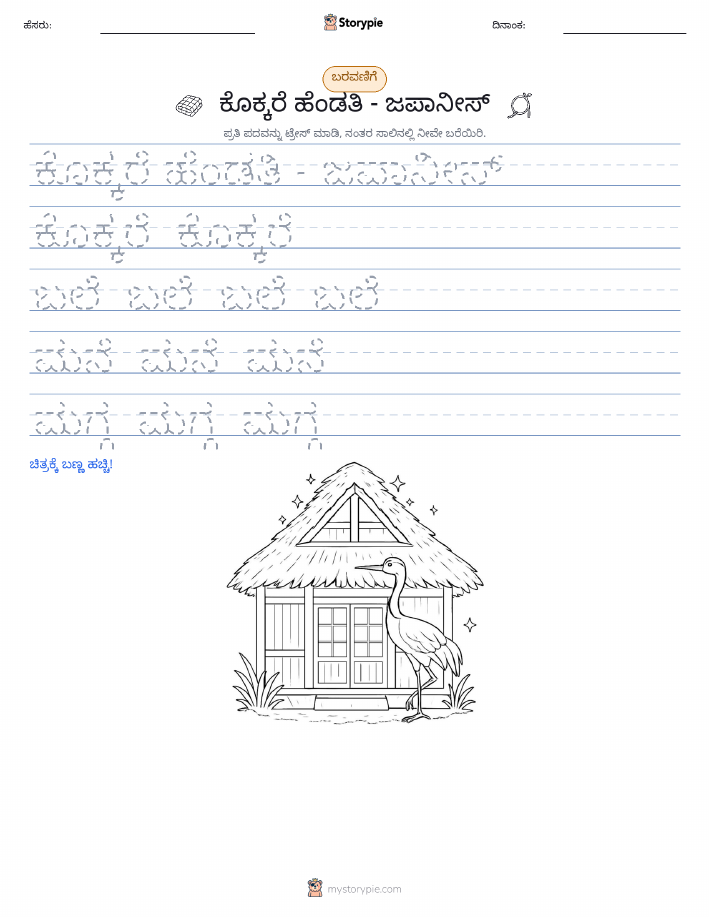 ಹೆಸರು:
Storypie
ದಿನಾಂಕ:
ಬರವಣಿಗೆ
ಕೊಕ್ಕರೆ ಹೆಂಡತಿ - ಜಪಾನೀಸ್
ಪ್ರತಿ ಪದವನ್ನು ಟ್ರೇಸ್ ಮಾಡಿ, ನಂತರ ಸಾಲಿನಲ್ಲಿ ನೀವೇ ಬರೆಯಿರಿ.
ಕೊಕ್ಕರೆ ಹೆಂಡತಿ - ಜಪಾನೀಸ್
ಕೊಕ್ಕರೆ ಕೊಕ್ಕರೆ
ಬಲೆ ಬಲೆ ಬಲೆ ಬಲೆ
ಮನೆ ಮನೆ ಮನೆ
ಮಗ್ಗ ಮಗ್ಗ ಮಗ್ಗ
ಚಿತ್ರಕ್ಕೆ ಬಣ್ಣ ಹಚ್ಚಿ!
mystorypie.com